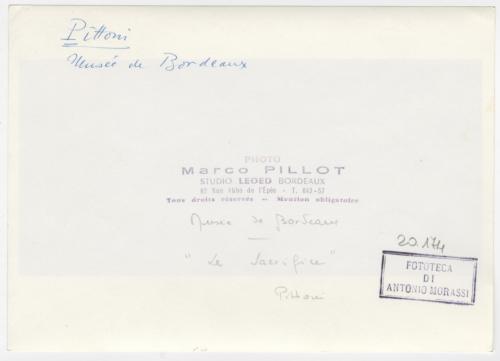 Pittoni
Musée de Bordeaux
PHOTO
Marco PILLOT
STUDIO LEOED BORDEAUX
62 Rue Abbé de l'Épée - T. 843-57
Tous droits réservés — Mention obligatoire
Musée de Bordeaux
"Le Sacrifice"
Pittoni
20.174
FOTOTECA
DI
ANTONIO MORASSI